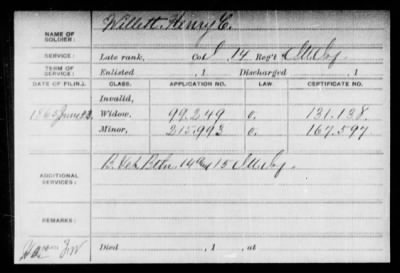 NAME OF SOLDIER: Willett, Henry C.
SERVICE: Late rank, Co. I 14 Reg't Ill Inf
TERM OF SERVICE: Enlisted , 1 Discharged , 1
DATE OF FILING. CLASS. APPLICATION NO. LAW. CERTIFICATE NO.
Invalid,
1865 June 23. Widow, 99.249 o. 131.138.
Minor, 215.993 o. 167.597
ADDITIONAL SERVICES: B. Vet. Battn. 14 & 15 Ill Inf.
REMARKS:
Died , 1 , at